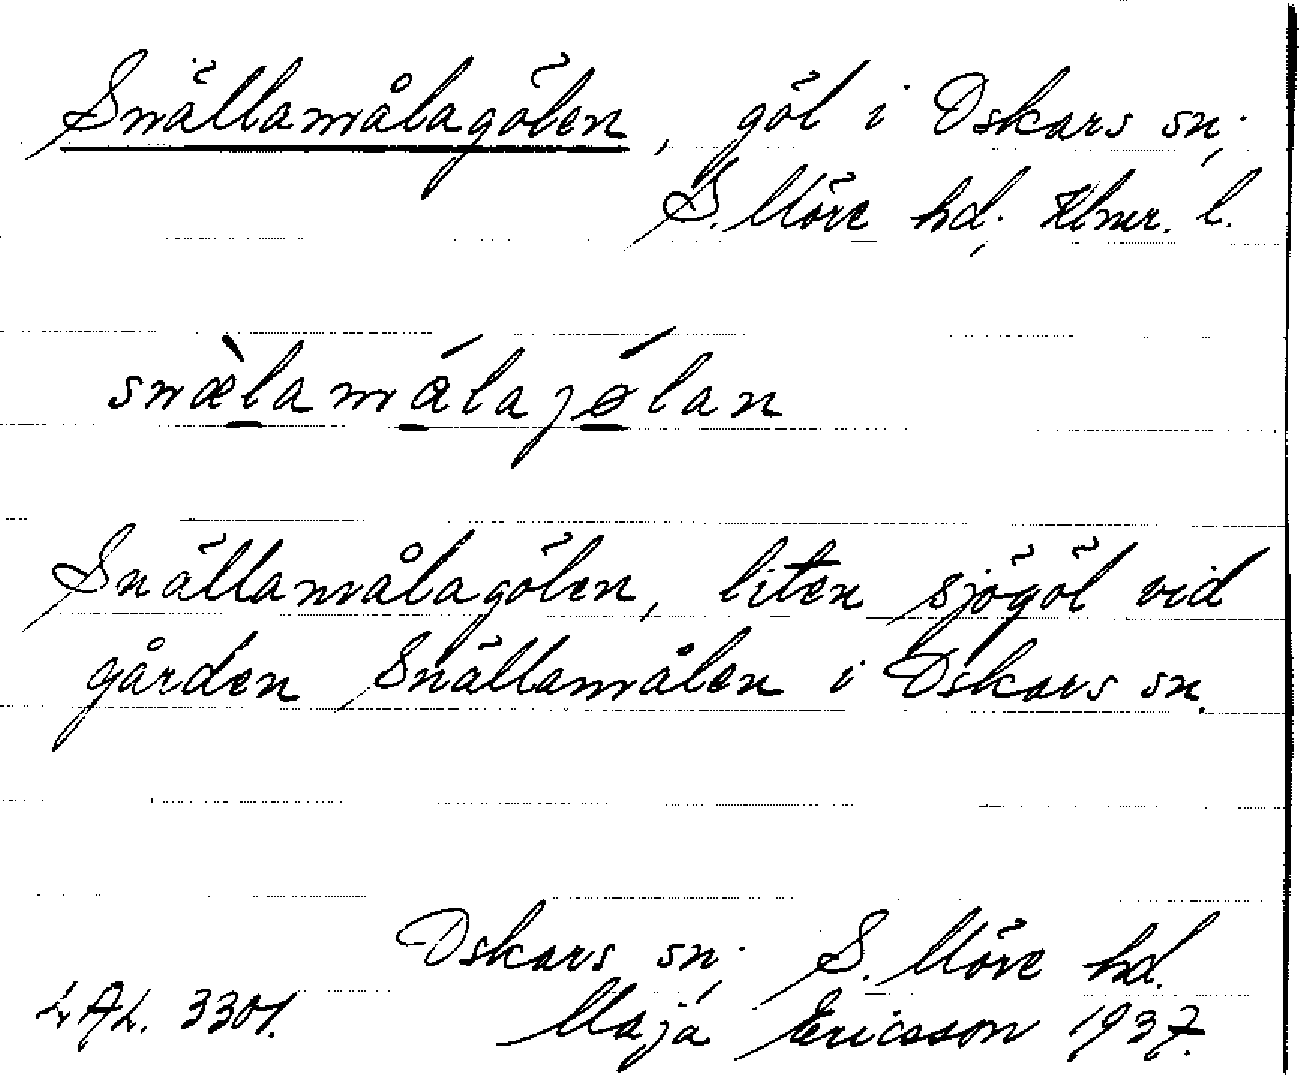 Snällamålagölen, göl i Oskars sn;
S. Möre hd; Klmr. l.
snæ̀lamálajǿlan
Snällamålagölen, liten sjögöl vid
gården Snällamålen i Oskars sn.
Oskars sn; S. Möre hd.
LAL. 3301. Maja Ericsson 1937.